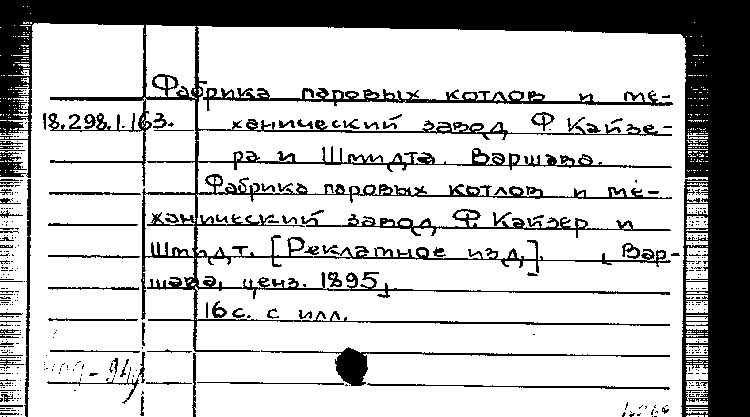 Фабрика паровых котлов и ме-
18.298.1.163. ханический завод Ф. Кайзе-
ра и Шмидта. Варшава.
Фабрика паровых котлов и ме-
ханический завод Ф. Кайзер и
Шмидт. [Рекламное изд.]. [Вар-
шава, ценз. 1895].
16 с. с илл.